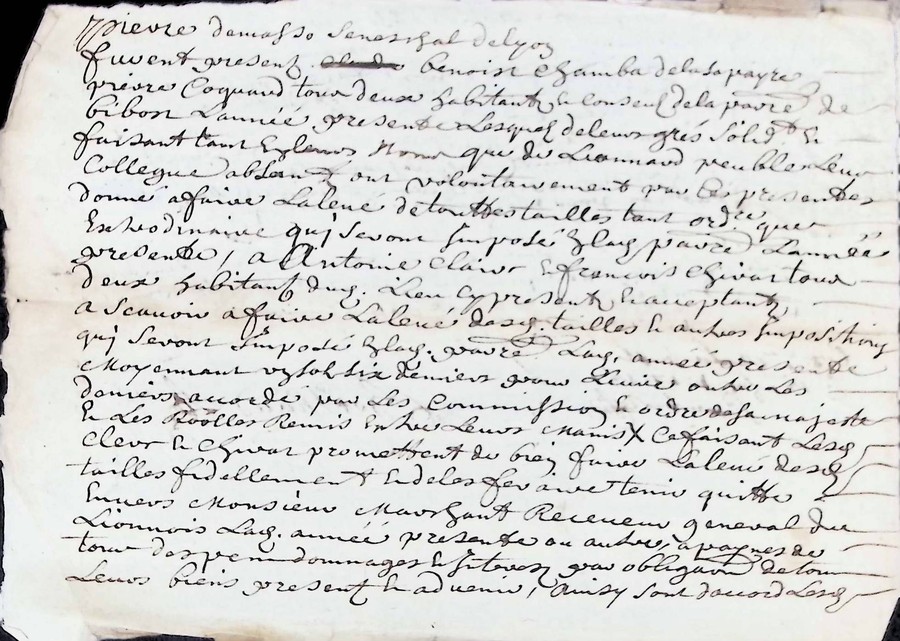 pierre demasso seneschal delyon
furent present. benoist chamba delasapayre
pierre Coquard tous deux habitants & conseulz dela parre de
bibost Lannée presente Lesquelz deleurs grés Solidt &
faisant tant En leurs Noms que de Lionnard peublier Leur
Collegue absent ont volontairement par ces presentes
donné a faire La Levé de touttes tailles tant ordre que
Extrodinaire quj seront Imposé Enlad parre Lannée
presente, a Antoine Clairc & francois Chivat tous
deux habitants dud. Lieu Cy present & acceptants
a Scavoir a faire La Levé desd. tailles & autres Impositions
quj seront Imposé Enlad. parre Lad. année presente
Moyennant vz solz six deniers pour Livre outre Les
deniers accordé par Les Commissions & ordre de sa Majesté
& Les Roolles Remis Entre Leurs Mains Ce faisant Lesd
Clerc & Chivat promettent de bien faire La Levé desd
tailles fidellement & de Les fe faire tenir quitte
Envers Monsieur Marchant Receveur general du
Lionnois Lad. année presente ou autre, a paynes de
tous despens dommages & Interestz par obligaon de tous
Leurs biens present & advenir, Ainsy sont daccord Lesd